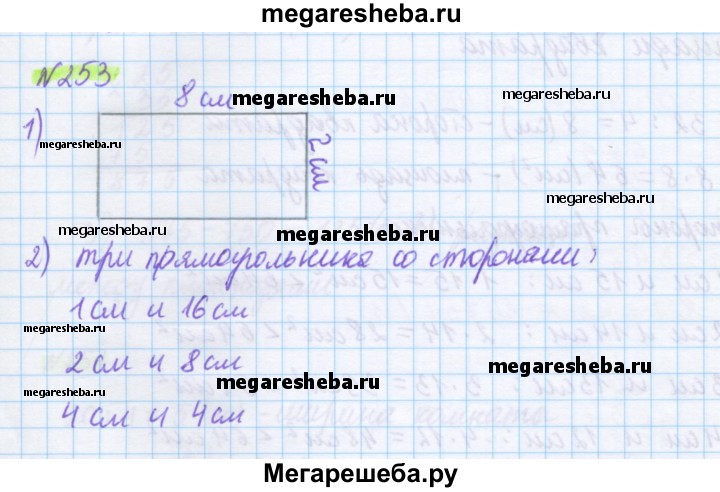 megaresheba.ru
№253
8 см
megaresheba.ru
megaresheba.ru
1)
megaresheba.ru
2 см
megaresheba.ru
megaresheba.ru
megaresheba.ru
2) три прямоугольника со сторонами:
1 см и 16 см
megaresheba.ru
2 см и 8 см
megaresheba.ru
megaresheba.ru
megaresheba.ru
4 см и 4 см
Мегарешеба.ру